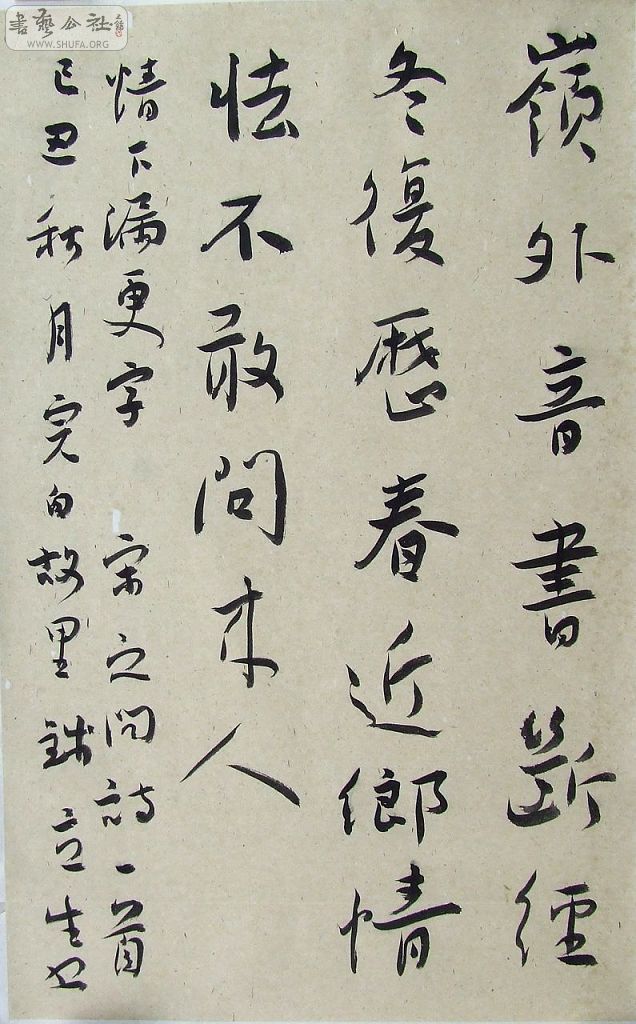 書藝公社
WWW.SHUFA.ORG
嶺外音書斷經
冬復歷春近鄉情
怯不敢問來人
情下漏更字 宋之問詩一首
己丑秋月完白故里錢立生书